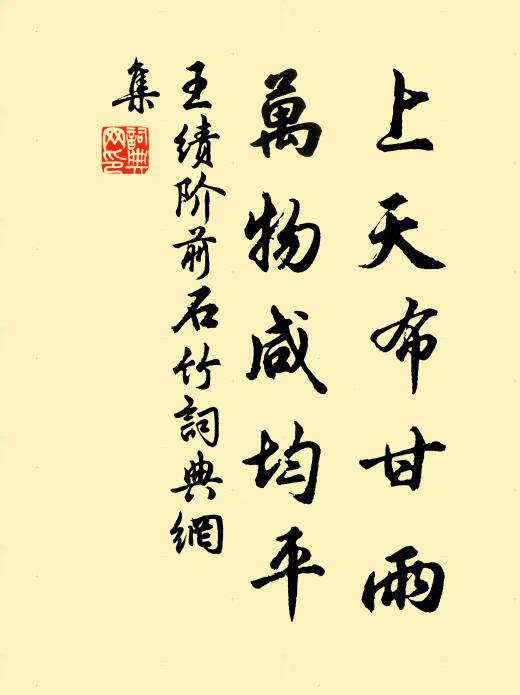 上天布甘雨
萬物咸均平
王绩阶前石竹詞典網
集
詞典
网印